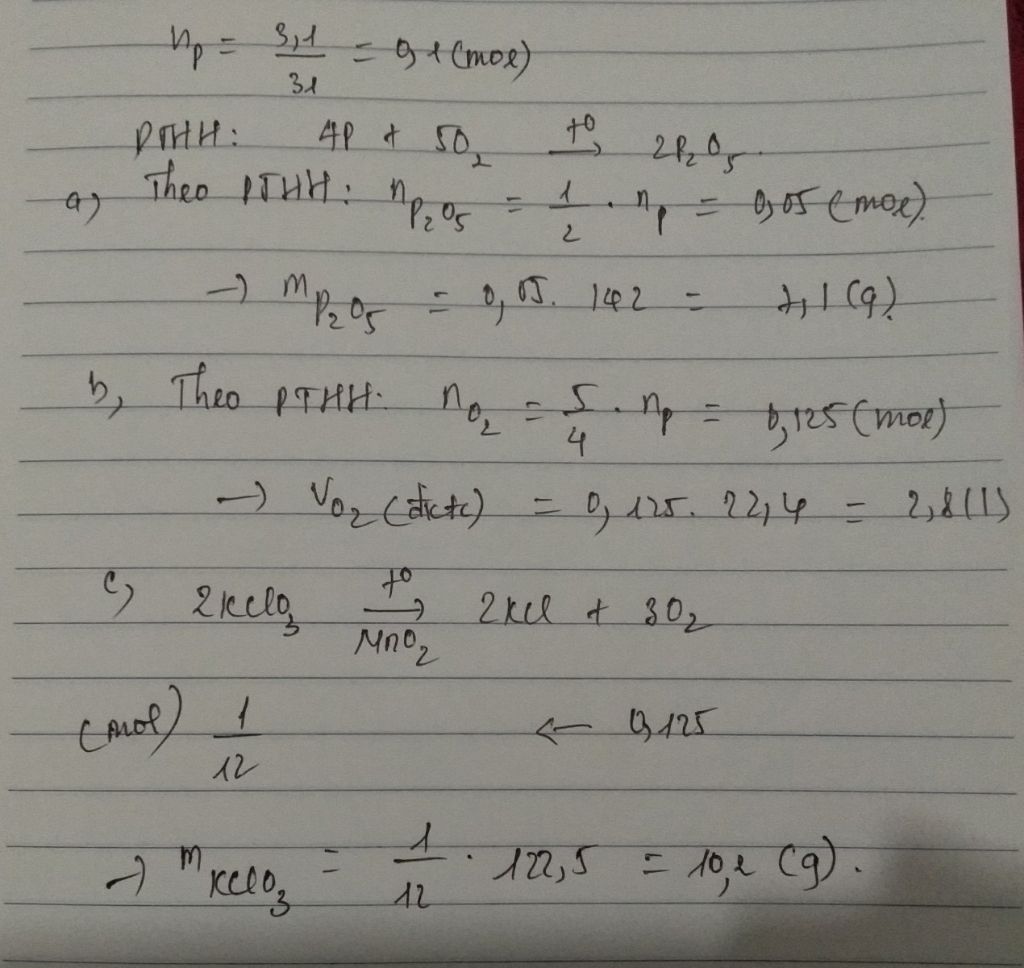 nₚ = 3,1/31 = 0,1 (mol)
PTHH: 4P + 5O₂ →(t⁰) 2P₂O₅.
a) Theo PTHH: n P₂O₅ = 1/2 . nₚ = 0,05 (mol).
→ m P₂O₅ = 0,05. 142 = 7,1 (g).
b, Theo PTHH: n O₂ = 5/4 . nₚ = 0,125 (mol)
→ V O₂ (đktc) = 0,125. 22,4 = 2,8 (l)
c) 2KClO₃ →(t⁰, MnO₂) 2KCl + 3O₂
(mol) 1/12 ← 0,125
→ m KClO₃ = 1/12 . 122,5 = 10,2 (g).